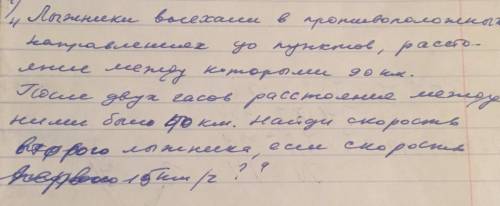 Лыжники выехали в противоположных
направлениях до пунктов, рассто-
яние между которыми 90 км.
После двух часов расстояние между
ними было 40 км. Найди скорость
второго лыжника, если скорость
15 км/г ? ?